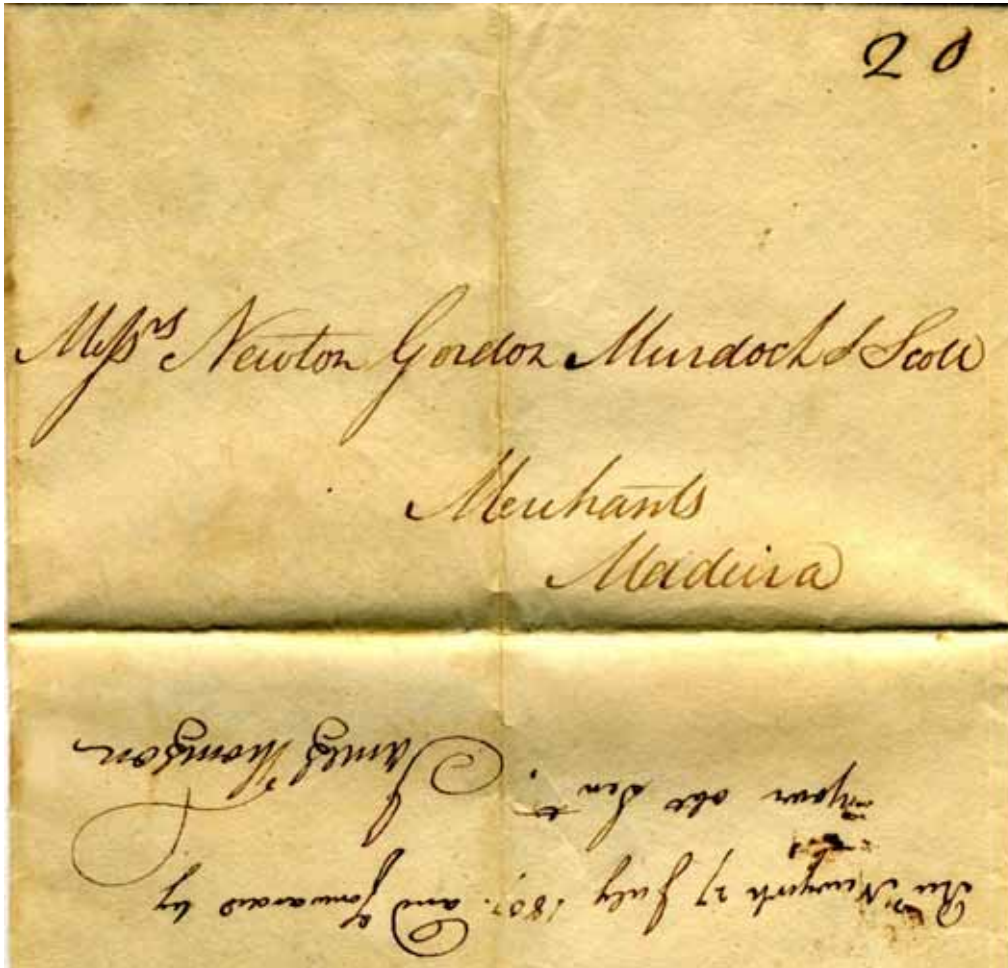 20
Messrs Newton Gordon Murdoch & Scott
Merchants
Madeira
Newyork 27 July 180 and forwarded by
your obt Servt
Thomson